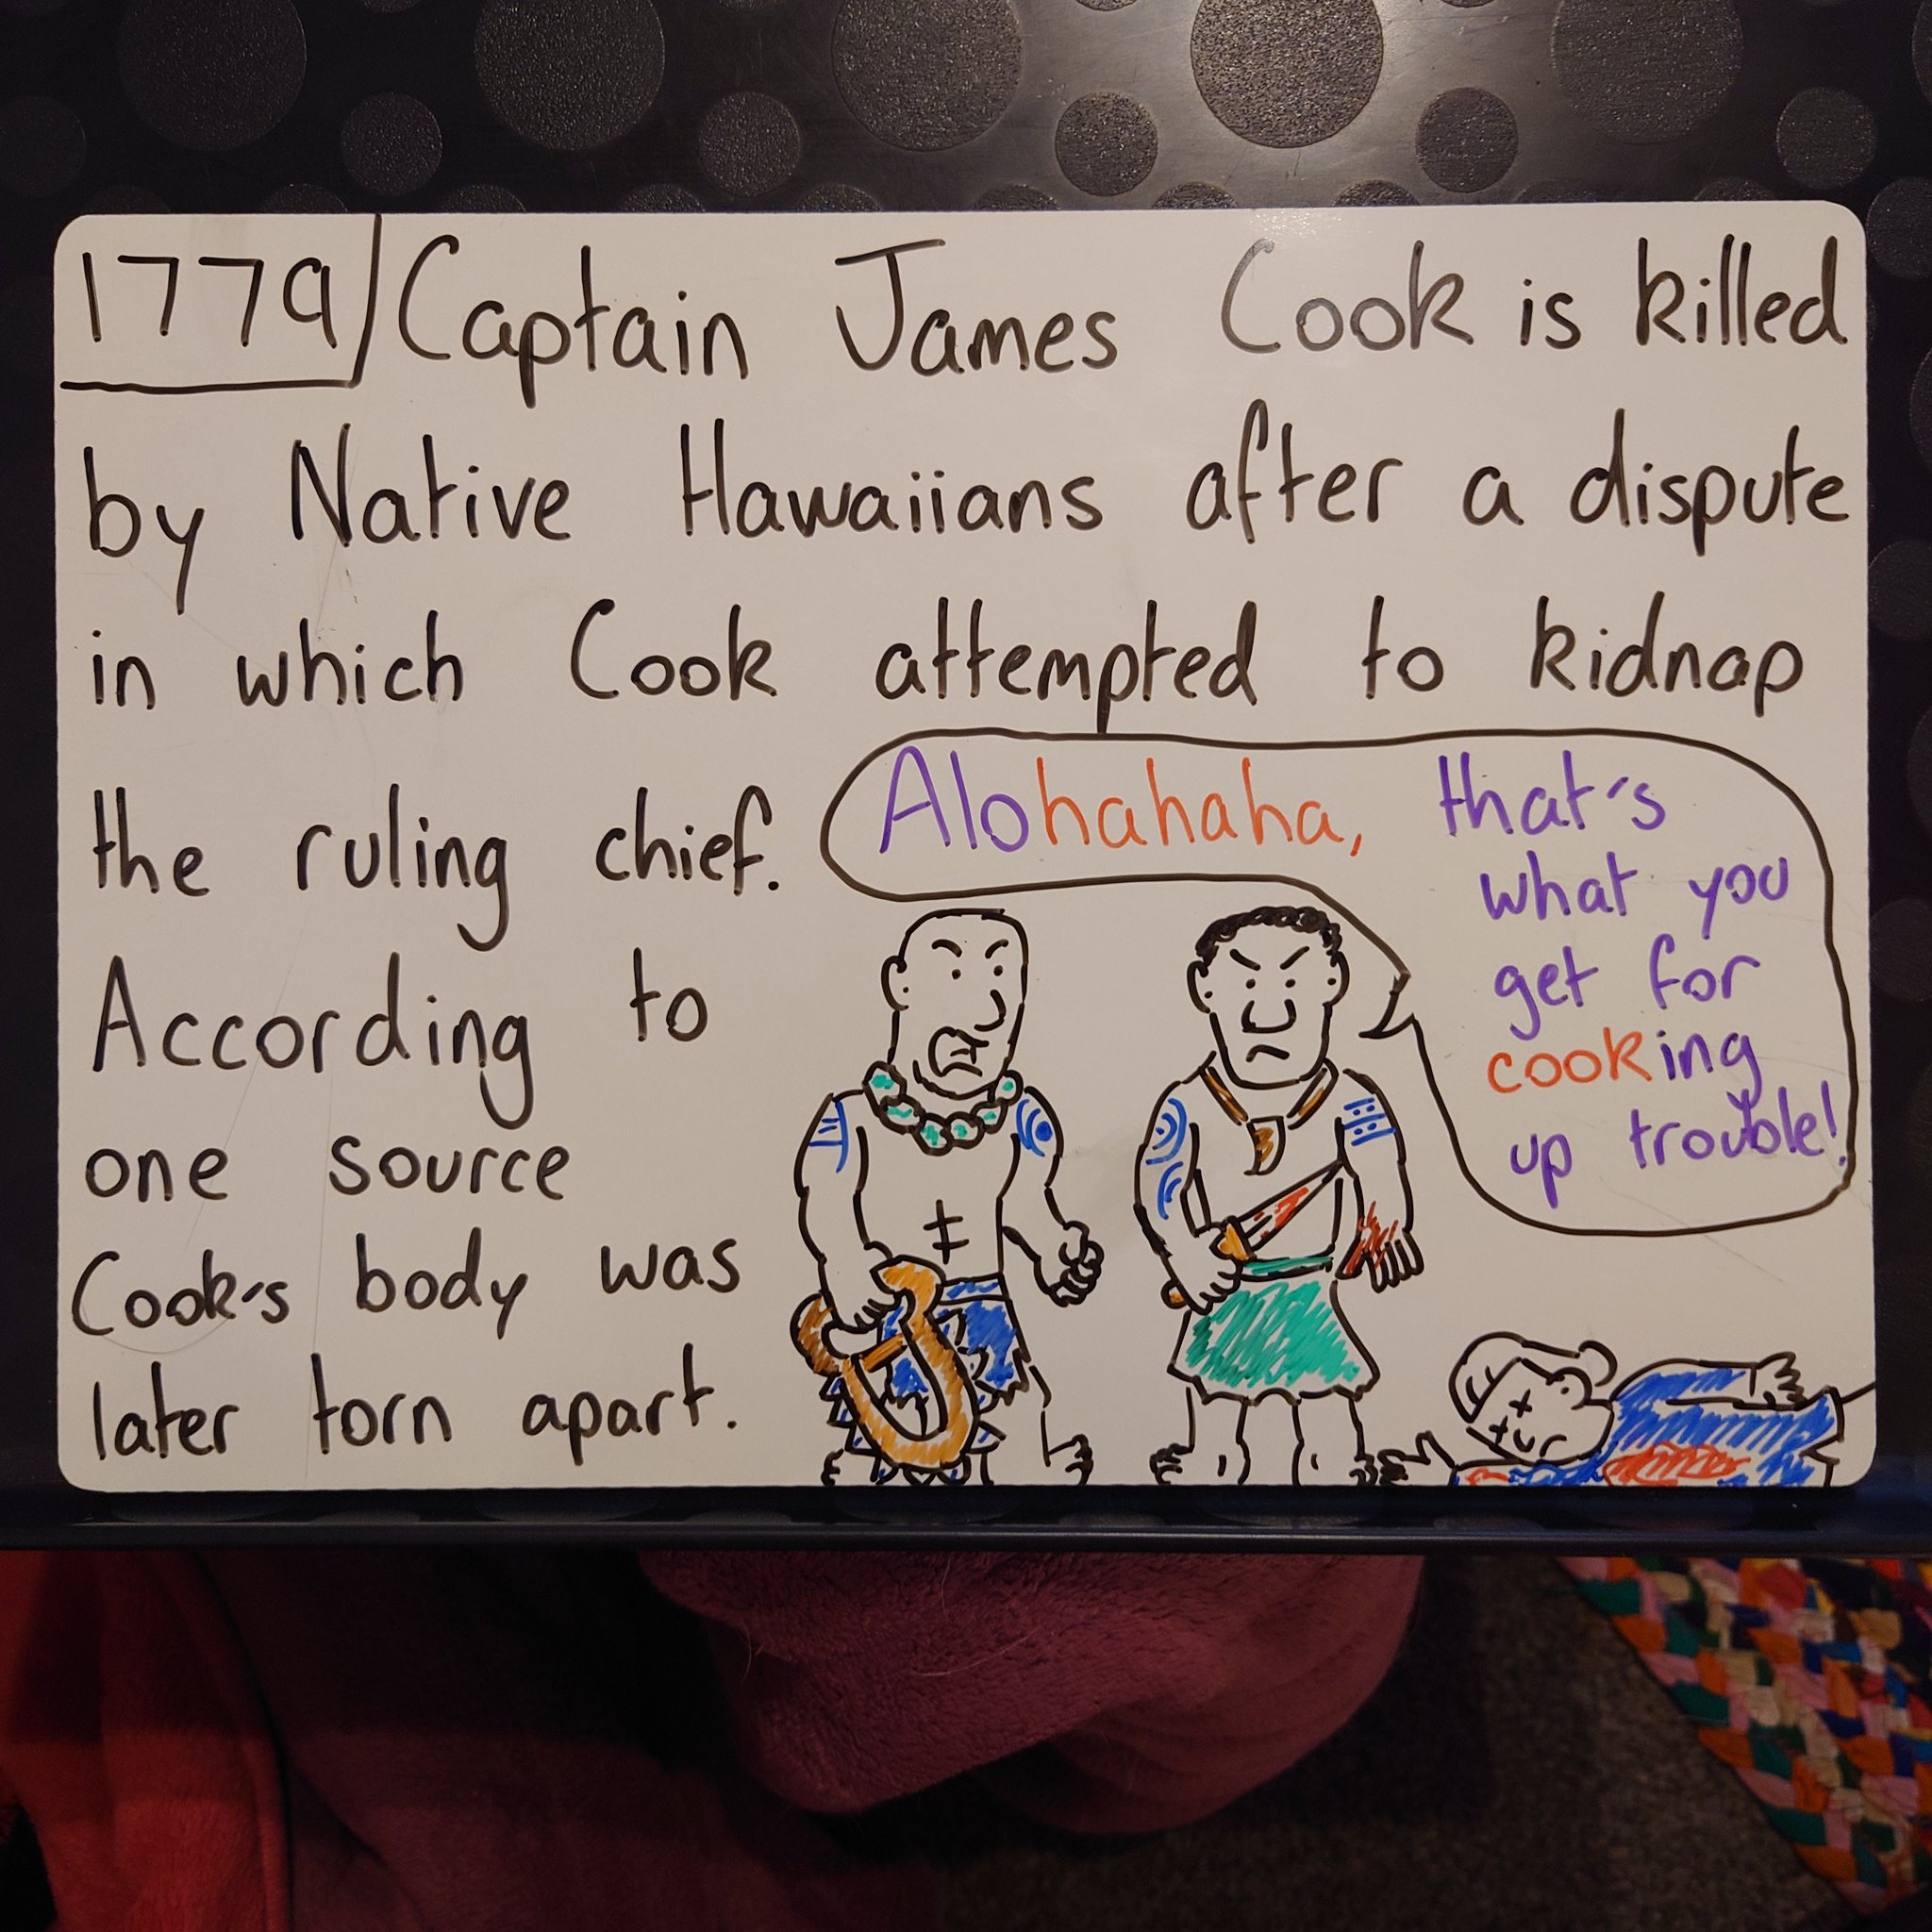 1779 Captain James Cook is killed
by Native Hawaiians after a dispute
in which Cook attempted to kidnap
the ruling chief.
According to
one source
Cook's body was
later torn apart.
Alohahaha, that's
what you
get for
cooking
up trouble!